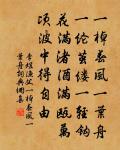 一棹春風一葉舟
一綸繭縷一輕鉤
花滿渚酒滿甌萬
頃波中得自由
李煜漁父一棹春風一
葉舟詞典網集